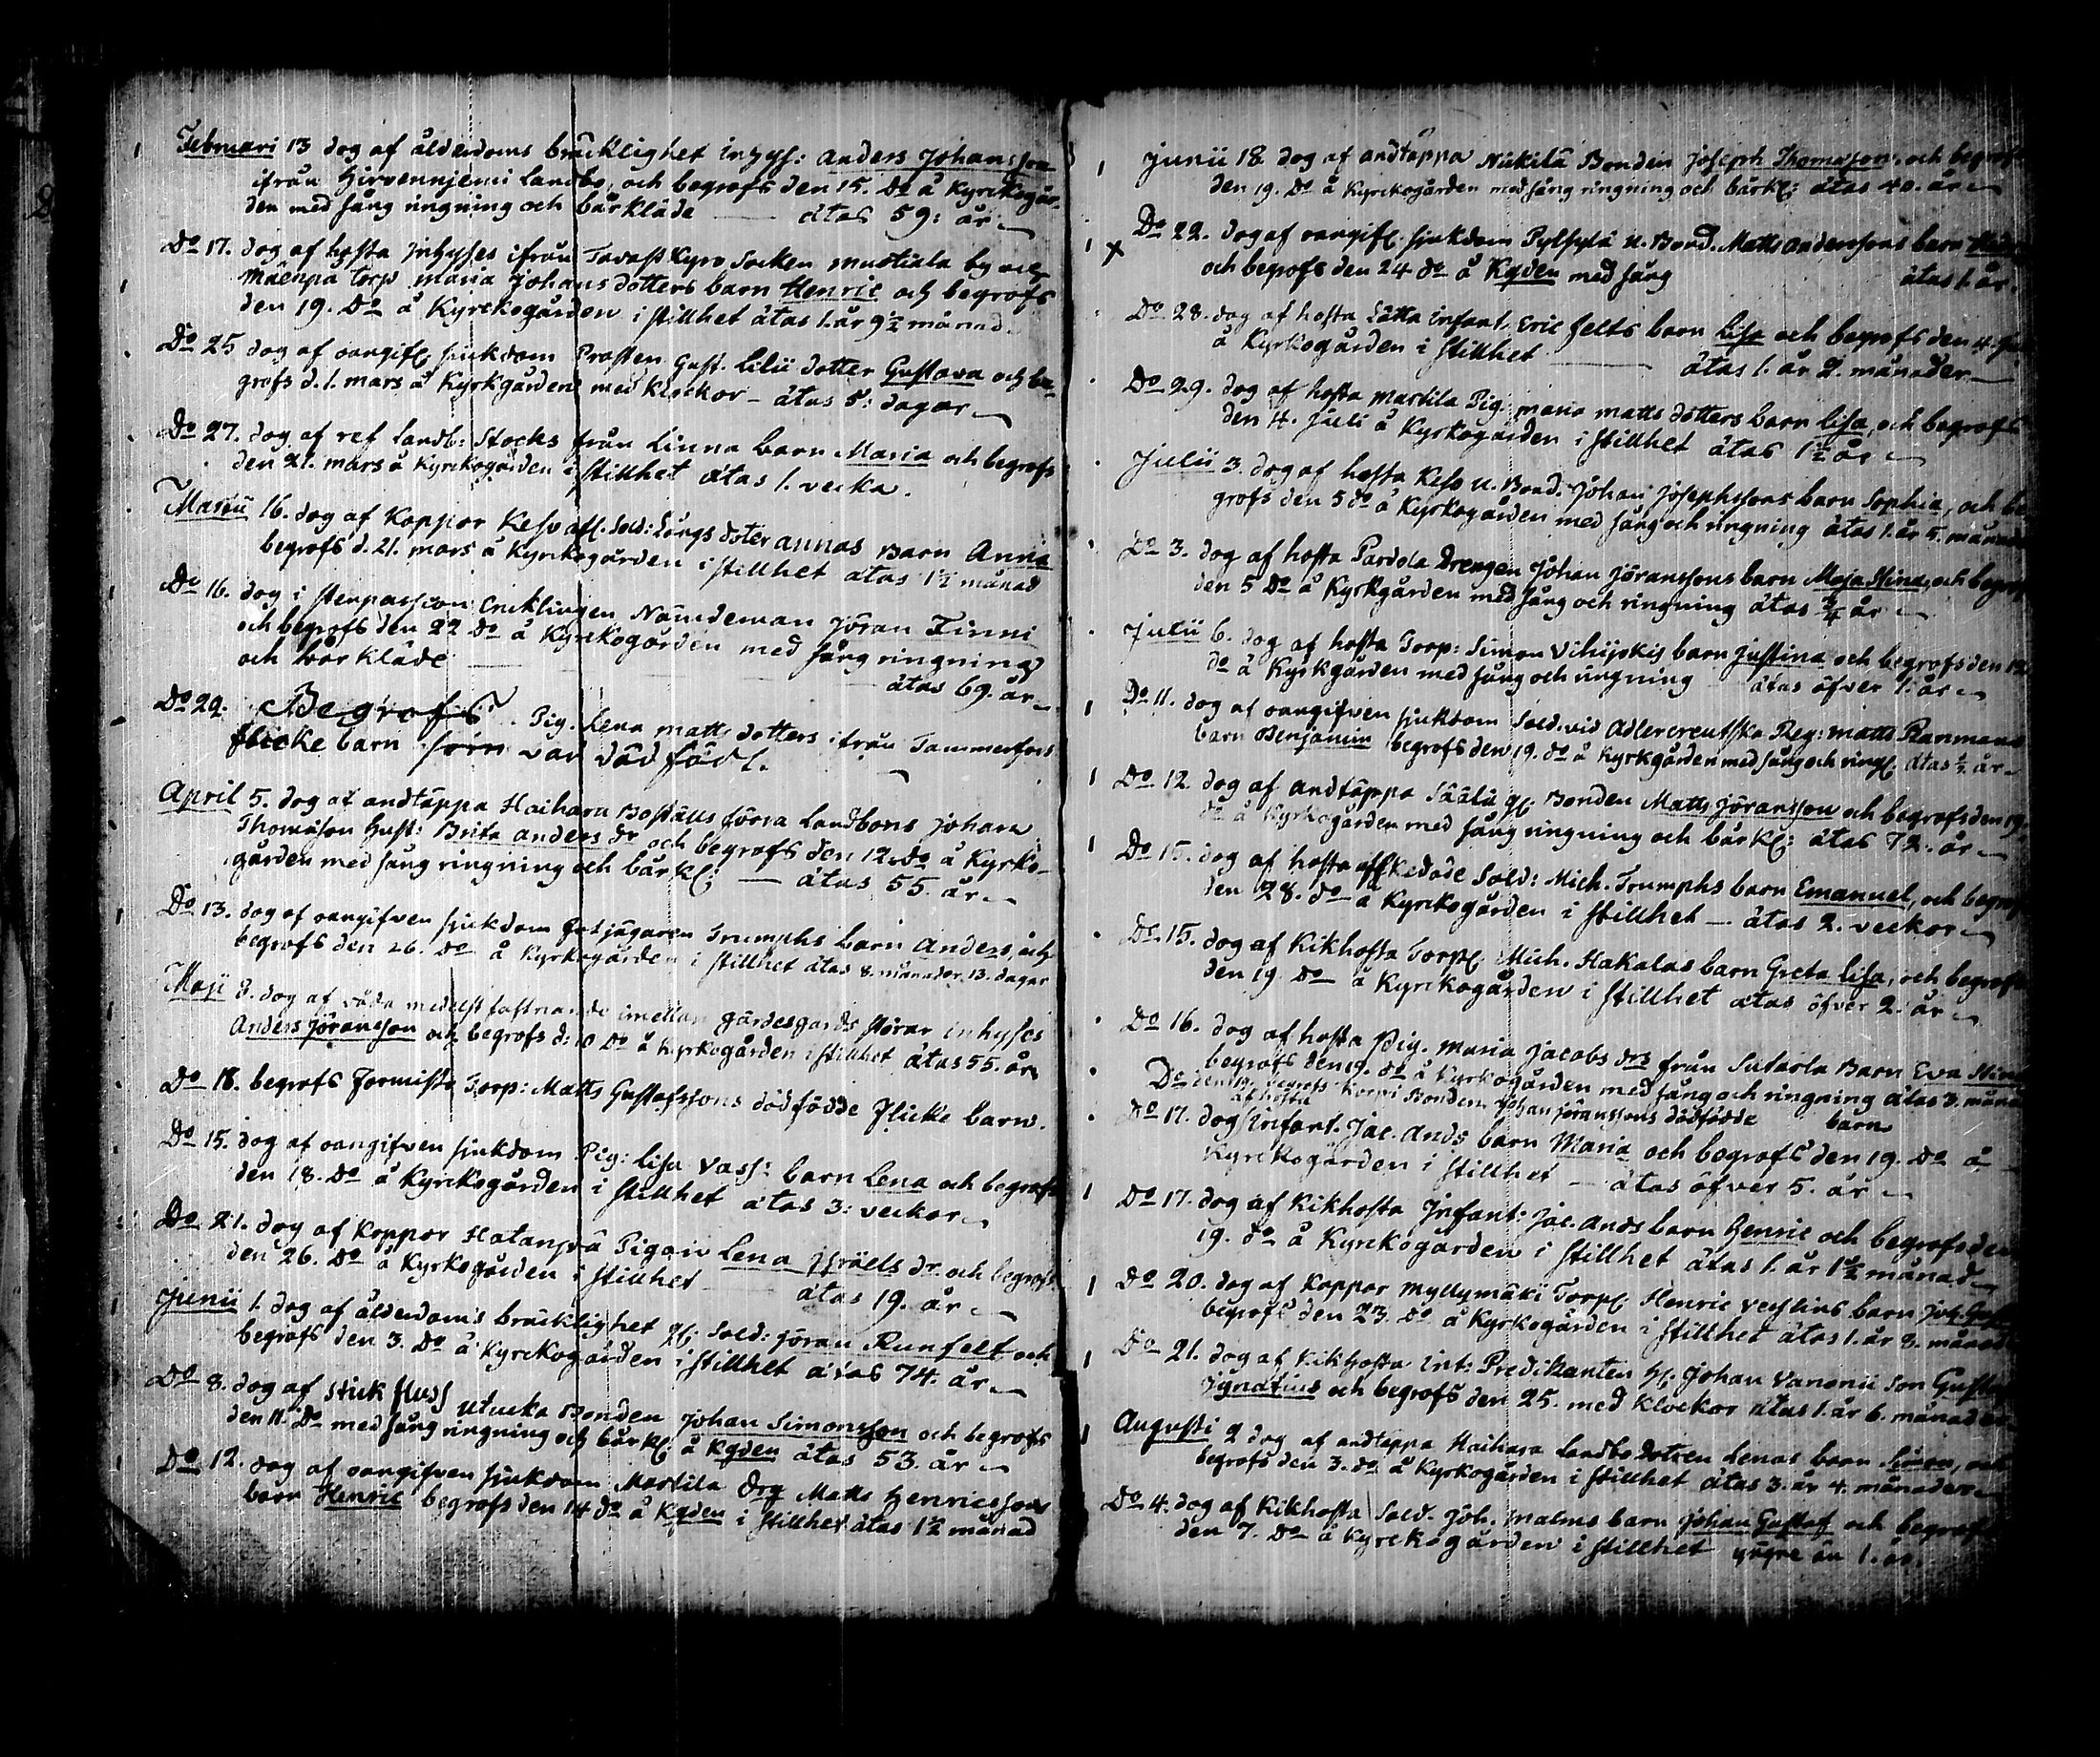 Februari 13 dog af ålderdoms bräcklighet inhys: Anders Johansson
ifrån Hirvennjemi Landbo, och begrofs den 15. Do å Kyrckogår-
den med sång ringning och bårkläde — ätas 59: år
Do 17. dog af hosta Inhyses ifrån Tavast Kyro Socken mustiala by och
Mäenpä torp Maria Johans dotters barn Henric och begrofs
den 19. Do å Kyrckogården i stillhet ätas 1. år 9 1/2 månad
Do 25 dog af oangifl sjukdom Prosten Gust. Lilii dotter Gustava och be-
grofs d. 1. mars å Kyrkgården med Klockor - ätas 5: dagar
Do 27. dog af ref Landb: Stocks från Linna barn Maria och begrofs
den 21. mars å Kyrckogården i stillhet ätas 1. vecka.
Martii 16. dog af Koppor Keso afl. Sold: Långs doter annas Barn Anna
begrofs d. 21. mars å Kyrckogården i stillhet ätas 1 1/2 månad
Do 16. dog i stenpassion Enklingen Nämdeman Jöran Finni
och begrofs den 22 Do å Kyrckogården med sång ringning
och bårkläde — ätas 69. år
Do 29. Begrofs Pig. Lena matts dotters ifrån Tammerfors
flicke barn som var dödfödt.
April 5. dog af andtäppa Haihara Boställs förra Landbons Johan
Thomæson Hust: Brita anders dr och begrofs den 12. Do å Kyrko-
gården med sång ringning och bårkl: — ätas 55. år
Do 13. dog af oangifven sjukdom Fotjägaren Trumphs barn Anders, och
begrofs den 26. Do å Kyrkogården i stillhet ätas 8. månader 13. dagar
Maji 8. dog af våda medelst fastnande imellan gärdesgårds störar inhyses
Anders Jöransson och begrofs d: 10 Do å Kyrkogården i stillhet ätas 55. år
Do 18. begrofs Formisto Torp: Matts Gustafssons dödfödde Flicke barn.
Do 15. dog af oangifven sjukdom Pig: Lisa Vass: barn Lena och begrofs
den 18. Do å Kyrckogården i stillhet ätas 3: veckor
Do 21. dog af Koppor Hatanpä Pigan Lena Israels dr. och begrofs
den 26. Do å Kyrkogården i stillhet — ätas 19. år
Junii 1. dog af ålderdoms bräcklighet gl: Sold: Jöran Runfelt och
begrofs den 3. Do å Kyrckogården i stillhet ätas 74. år
Do 8. dog af stick fluss Utucka Bonden Johan Simonsson och begrofs
den 11. Do med sång ringning och bårkl: å Kgden ätas 53. år
Do 12. dog af oangifven sjukdom Martila Drg Matts Henricssons
barn Henric begrofs den 14 do å Kgden i stillhet ätas 1 1/2 månad
Junii 18 dog af andtäppa Nickilä Bonden Joseph Thomasson, och begrofs
den 19. Do å Kyrckogården med sång ringning och bårkl: ätas 40. år
Do 22. dog af oangifl sjukdom Pylsylä U. Bond. Matts Anderssons barn
och begrofs den 24 do å Kgden med sång ätas 1. år.
Do 28. dog af hosta Lätta infant. Eric Felts barn Lisa och begrofs den 4.
å Kyrkogården i stillhet — ätas 1. år 2. månader
Do 29. dog af hosta Martila Pig: maria matts dotters barn Lisa, och begrofs
den 4. Juli å Kyrkogården i stillhet ätas 1 1/2 år
Julii 3. dog af hosta Keso U. Bond. Johan Josephssons barn Sophia, och be-
grofs den 5 do å Kyrkogården med sång och ringning ätas 1. år 5. månader
Do 3. dog af hosta Pardola Drengen Johan Jöranssons barn Maja Stina, och begrofs
den 5 Do å Kyrkgården med sång och ringning ätas 3/4 år
Julii 6. dog af hosta Torp: Simon Vihijokis barn Justina och begrofs den 12
do å Kyrkgården med sång och ringning ätas öfver 1. år
Do 11. dog af oangifven sjukdom Sold. vid Adlercreutzska Reg: matts Ranmans
barn Benjamin begrofs den 19. do å Kyrkgården med sång och ringl. ätas 1/2 år
Do 12. dog af andtäppa Säälä gl: Bonden Matts Jöransson och begrofs den 19.
do å Kyrkogården med sång ringning och bårkl: ätas 72. år
Do 15. dog af hosta affskedade Sold: Mich. Trumphs barn Emanuel, och begrofs
den 28. do å Kyrckogården i stillhet — ätas 2. veckor
Do 15. dog af Kikhosta Torpl Mich. Hakalas barn Greta Lisa, och begrofs
den 19. Do å Kyrckogården i stillhet ätas öfver 2. år
Do 16. dog af hosta Pig. Maria Jacobs drs från Sutarla Barn Eva Stina
begrofs den 19. do å Kyrkogården med sång och ringning ätas 3. månad
Do den 19. begrofs Korpi Bonden Johan Jöranssons dödfödde barn
Do 17. dog af hosta Infant. Jac. Ands barn Maria och begrofs den 19. Do å
Kyrckogården i stillhet — ätas öfver 5. år
Do 17. dog af Kikhosta Infant: Jac. Ands barn Henric och begrofs den
19. do å Kyrckogården i stillhet ätas 1. år 1 1/2 månad
Do 20. dog af Koppor Myllymäki Torpl Henric barn Joh. Gustaf
begrofs den 23. Do å Kyrkogården i stillhet ätas 1. år 8. månad
Do 21. dog af Kikhosta int: Predikanten Hl: Johan Vanonii Son Gustaf
Ignatius och begrofs den 25. med Klockor ätas 1. år 6. månader
Augusti 2 dog af andtäppa Haihara Landbo Dotren Lenas barn Simon, och
begrofs den 3. do å Kyrkogården i stillhet ätas 3. år 4. månader
Do 4. dog af Kikhosta Sold. Joh. Malms barn Johan Gustaf och begrofs
den 7. Do å Kyrckogården i stillhet yngre än 1. år.